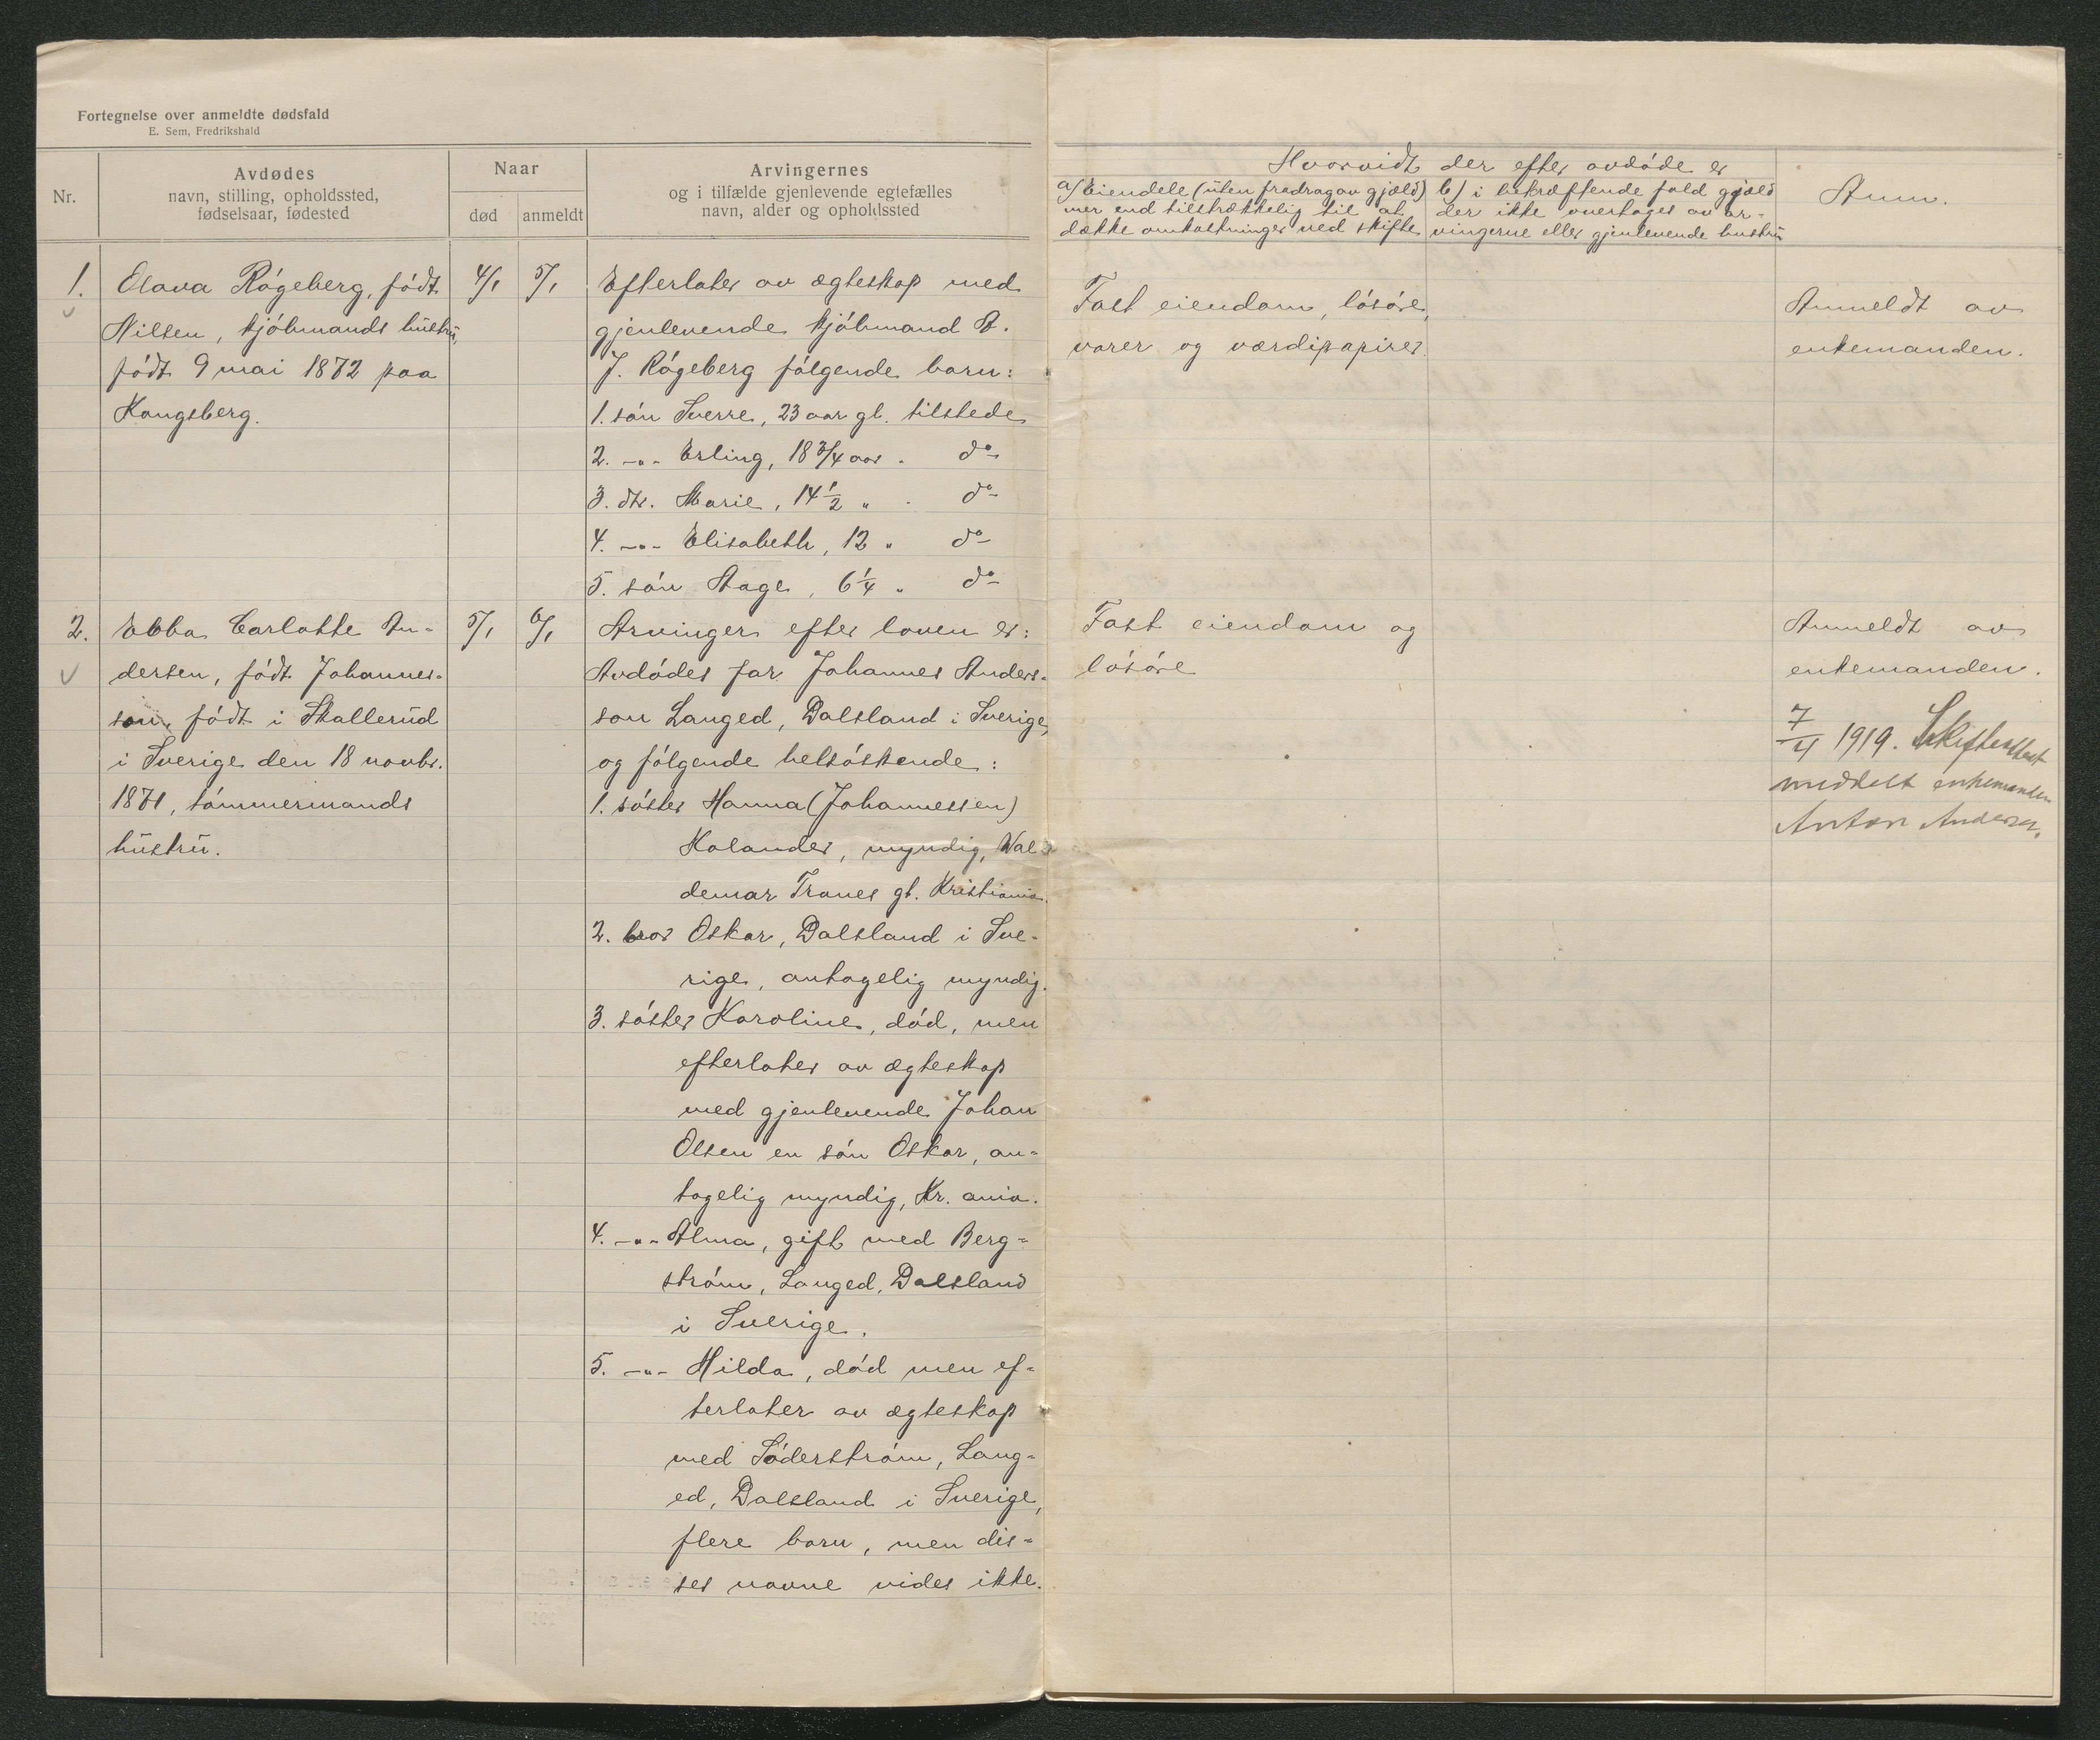 Fortegnelse over anmeldte dødsfald
E. Sem, Fredrikshald
Nr.
Avdødes
navn, stilling, opholdssted,
fødselsaar, fødested
Naar
død
anmeldt
Arvingernes
og i tilfælde gjenlevende egtefælles
navn, alder og opholdssted
Hvorvidt der efter avdøde er
a/ Eiendele (uten fradrag av gjæld)
mer end tilstrækkelig til at
dække omkostninger ved skifte
b/ i bekræftende fald gjæld
der ikke overtages av ar-
vingerne eller gjenlevende hustru
Anm.
1.
Olava Rógeberg, født
Nilsen, kjóbmands hustru,
født 9 mai 1872 paa
Kongsberg.
4/1
5/1
Efterlater av ægteskap med
gjenlevende kjóbmand A.
J. Rógeberg følgende barn:
1. søn Sverre, 23 aar gl. tilstede
2. -"- Erling, 18 3/4 aar . do
3. dtr. Marie, 14 1/2 " . do
4. -"- Elisabeth, 12 " do
5. søn Aage, 6 1/4 " do
Fast eiendom, løsøre,
varer og værdipapirer.
Anmeldt av
enkemanden.
2.
Ebba Carlotte An-
dersen, født Johannes-
son, født i Skallerud
i Sverige den 18 novbr.
1871, tømmermands
hustru.
5/1
6/1
Arvinger efter loven er:
Avdødes far Johannes Anders-
son Langed, Dalsland i Sverige,
og følgende helsøskende:
1. søster Hanna (Johannessen)
Holander, myndig, Wal-
demar Tranes gt. Kristiania.
2. bror Oskar, Dalsland i Sve-
rige, antagelig myndig.
3. søster Karoline, død, men
efterlater av ægteskap
med gjenlevende Johan
Olsen en søn Oskar, an-
tagelig myndig, Kr. ania.
4. -"- Alma, gift med Berg-
strøm, Langed, Dalsland
i Sverige.
5. -"- Hilda, død men ef-
terlater av ægteskap
med Søderstrøm, Lang-
ed, Dalsland i Sverige,
flere barn, men dis-
ses navne vides ikke.
Fast eiendom og
løsøre
Anmeldt av
enkemanden.
7/4 1919. Skifteattest
meddelt enkemanden
Anton Andersen.